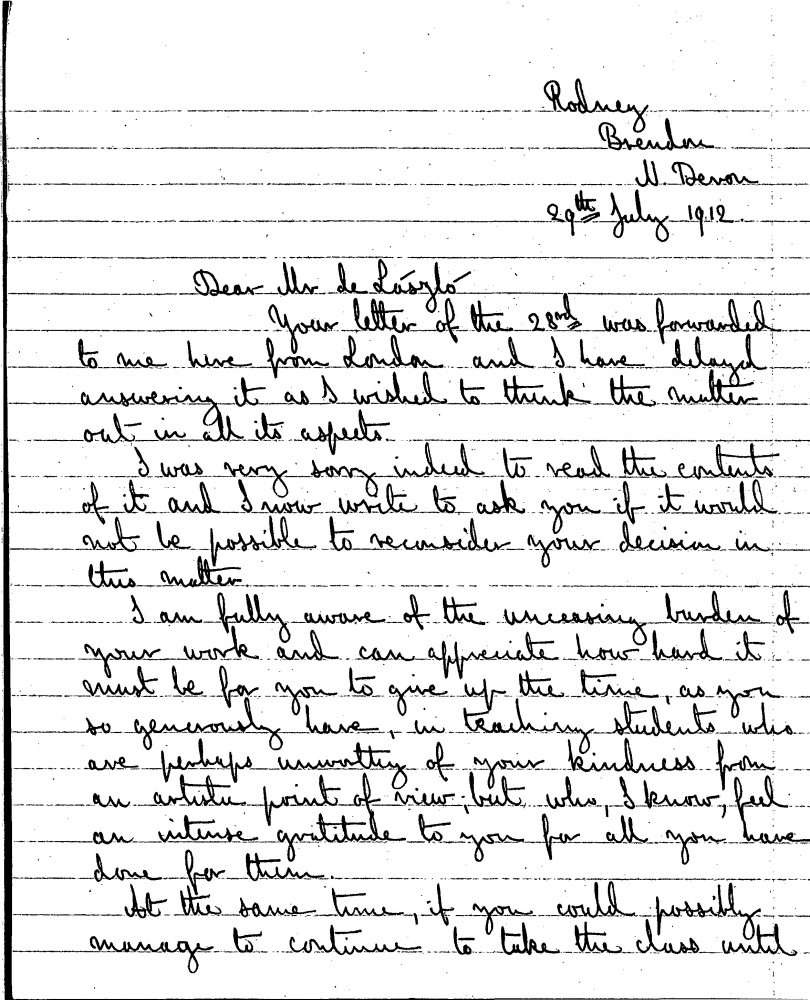 Rodney
Brendon
N. Devon
29th July 1912.
Dear Mr de László
Your letter of the 23rd was forwarded
to me here from London and I have delayed
answering it as I wished to think the matter
out in all its aspects.
I was very sorry indeed to read the contents
of it and I now write to ask you if it would
not be possible to reconsider your decision in
this matter.
I am fully aware of the unceasing burden of
your work and can appreciate how hard it
must be for you to give up the time, as you
so generously have, in teaching students who
are perhaps unworthy of your kindness from
an artistic point of view, but who, I know, feel
an intense gratitude to you for all you have
done for them.
At the same time, if you could possibly
manage to continue to take the class until